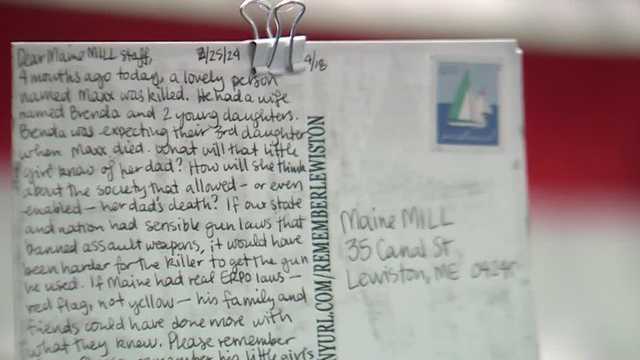 Dear Maine MILL staff, 2/25/24 4/18
4 months ago today, a lovely person
named Maxx was killed. He had a wife
named Brenda and 2 young daughters.
Brenda was expecting their 3rd daughter
when Maxx died. What will that little
girl know of her dad? How will she think
about the society that allowed – or even
enabled – her dad's death? If our state
and nation had sensible gun laws that
banned assault weapons, it would have
been harder for the killer to get the gun
he used. If Maine had real ERPO laws –
red flag, not yellow – his family and
friends could have done more with
what they knew. Please remember
remember his little girls
NYURL.COM/REMEMBERLEWISTON
Maine MILL
35 Canal St.
Lewiston, ME 04240